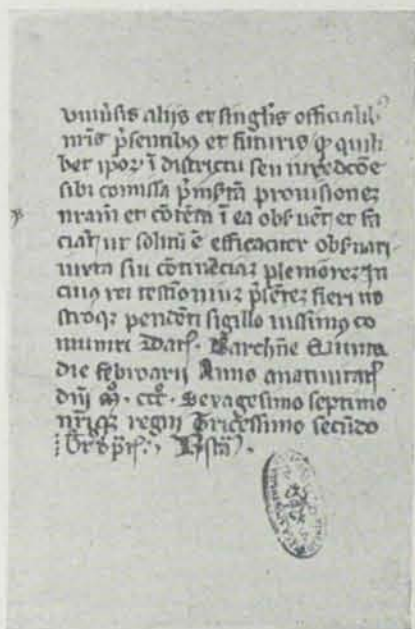 uniusis alijs et singlis officialib
nris psentibus et futuris qd quili
bet ipor i districtu seu iuredcōe
sibi comissa pinsrta prouisionez
nram et cōtēta i ea obseruet et fa
ciat ut solitū ē efficaciter obseruari
iuxta sui cōtinēciaz pleniorez In
cuius rei testioniuz psētez fieri
stroqz pendēti sigillo iussimus co
muniri Dat. Barchne Quinta
die febroarii Anno anatiuitat
dni Mº. cccº. Sexagesimo septimo
nriqz regni Tricessimo secūdo